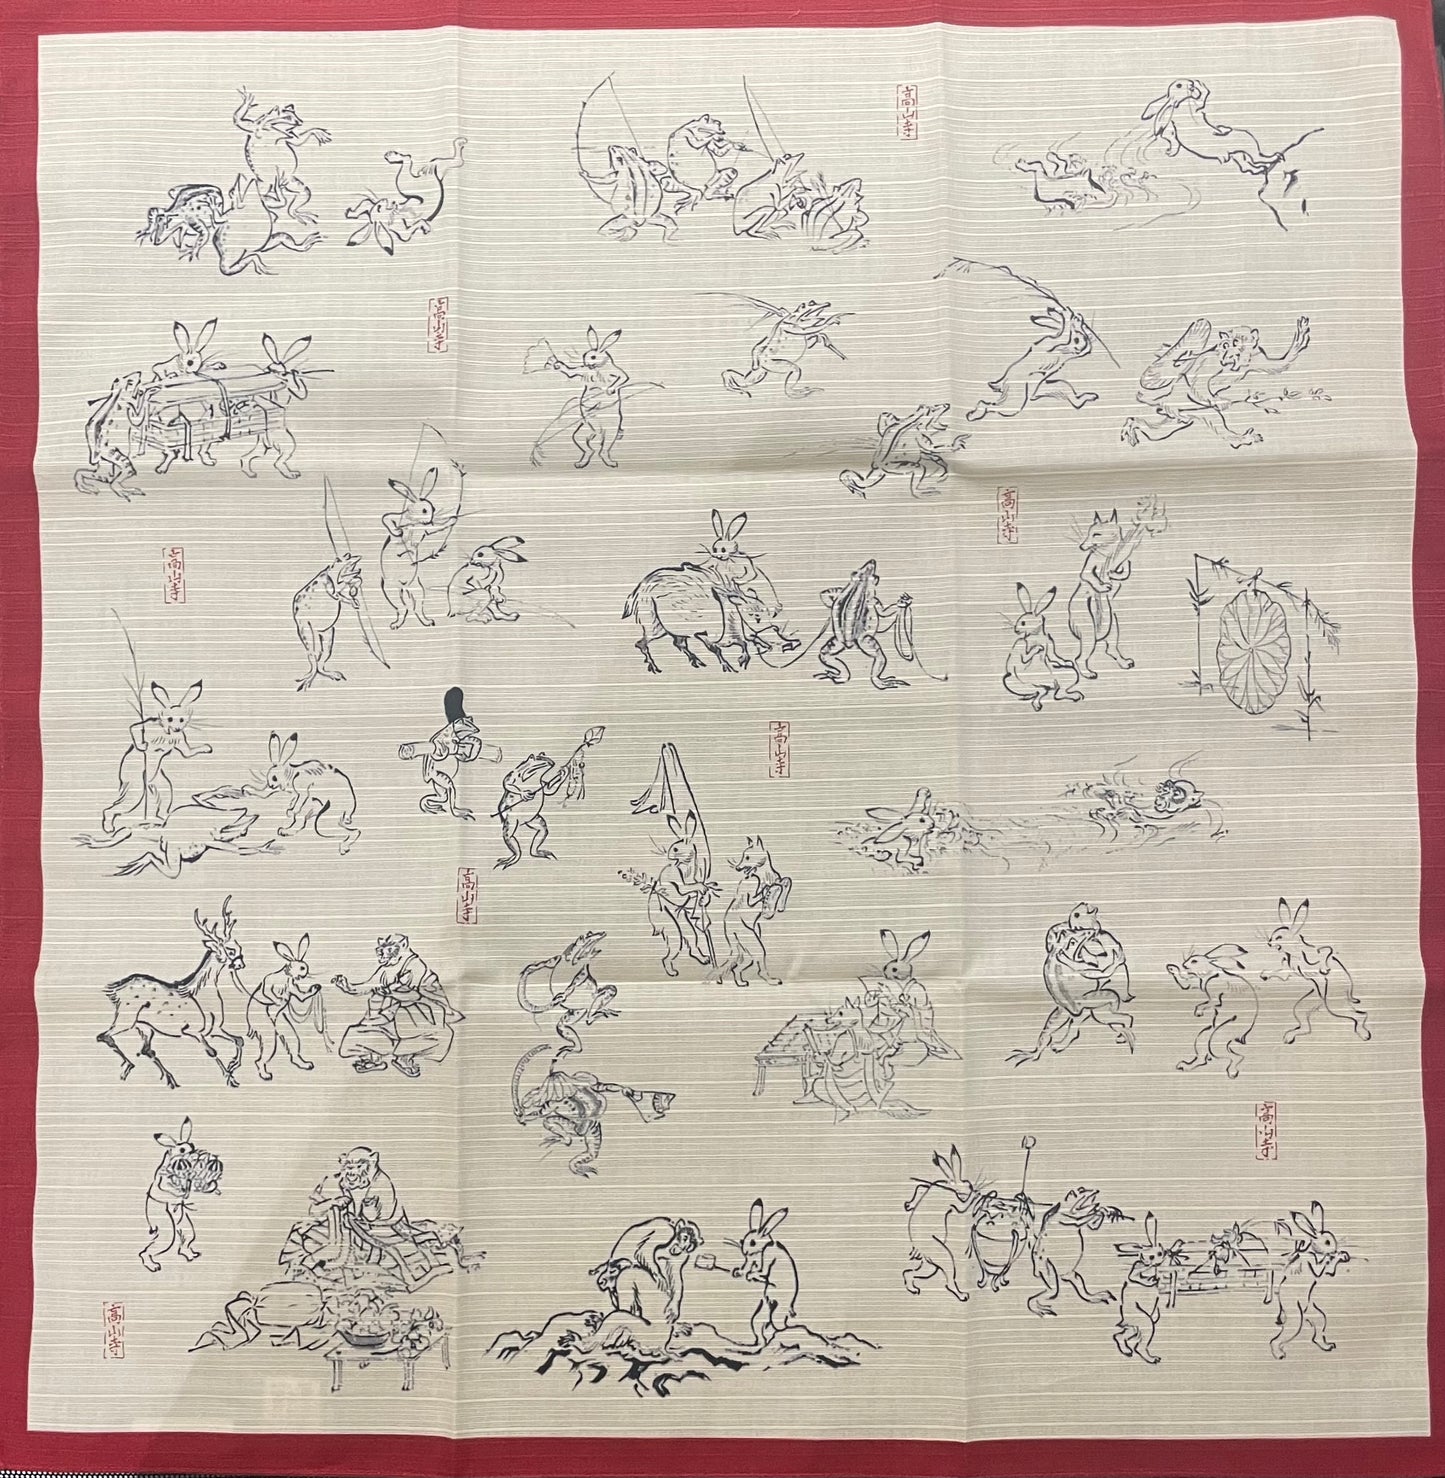 高山寺
高山寺
高山寺
高山寺
高山寺
高山寺
高山寺
高山寺